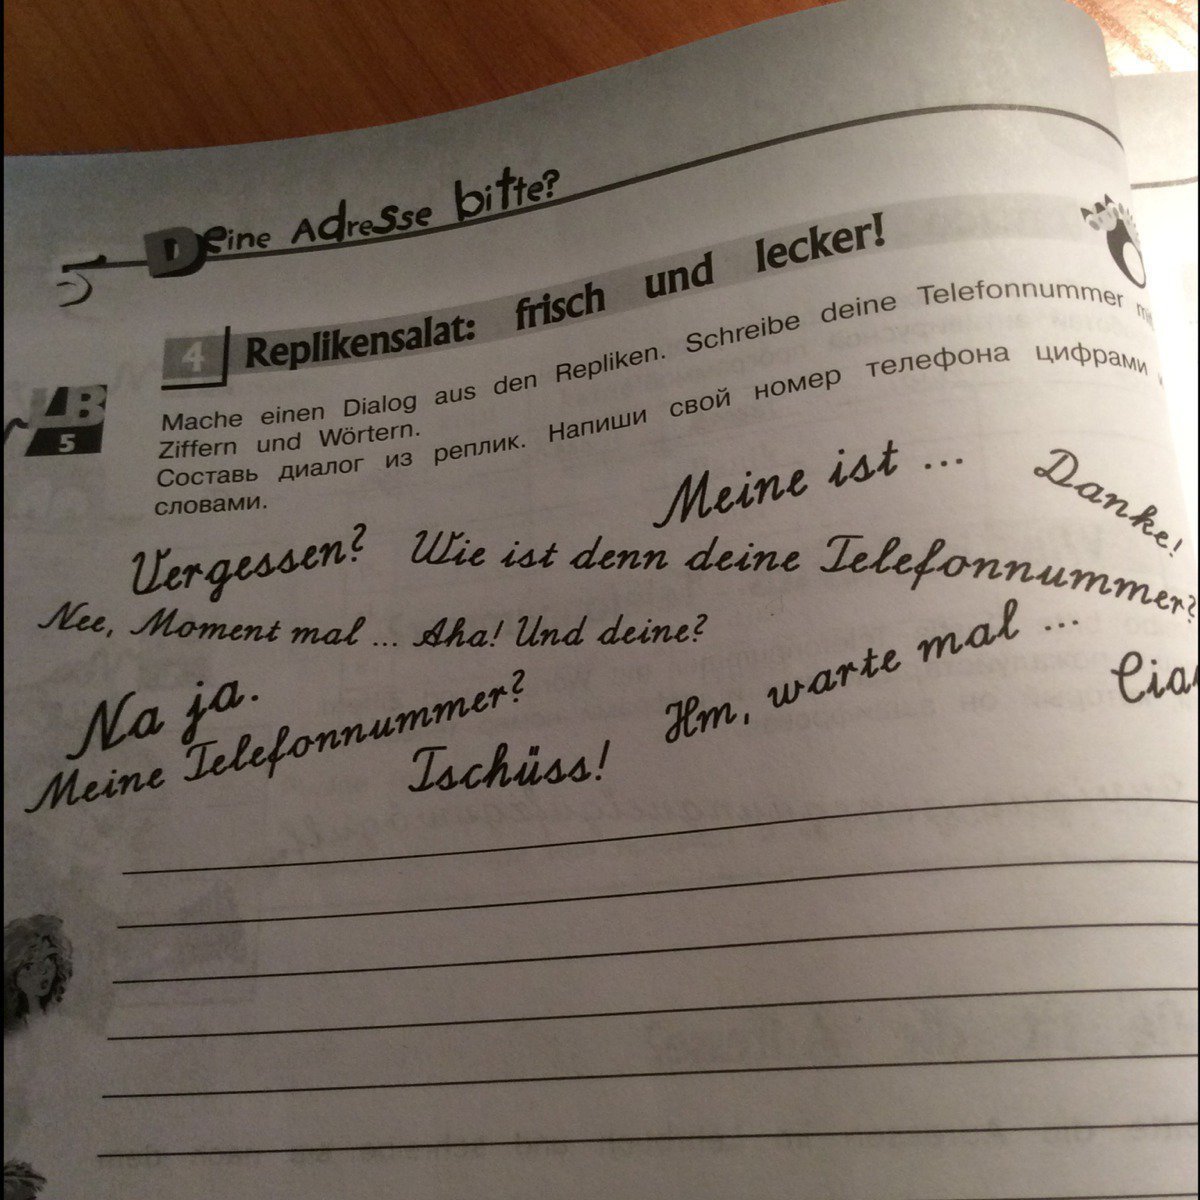 5
Deine Adresse bitte?
4 Replikensalat: frisch und lecker!
Mache einen Dialog aus den Repliken. Schreibe deine Telefonnummer
Ziffern und Wörtern.
Составь диалог из реплик. Напиши свой номер телефона цифрами
словами.
LB
5
Meine ist ... Danke!
Vergessen? Wie ist denn deine Telefonnummer?
Nee, Moment mal ... Aha! Und deine?
Na ja. Hm, warte mal ...
Meine Telefonnummer?
Tschüss!